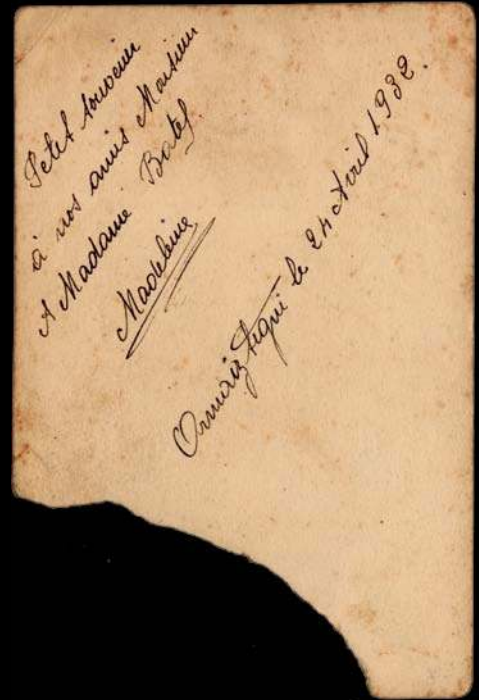 Petit souvenir
à nos amis Monsieur
A Madame Batel
Madeleine
Ormaiztegui le 24 Avril 1932.